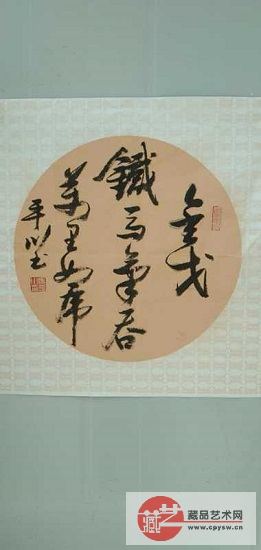 金戈
鐵马氣吞
萬里如虎
平
藏艺
藏品艺术网
www.cpysw.cn